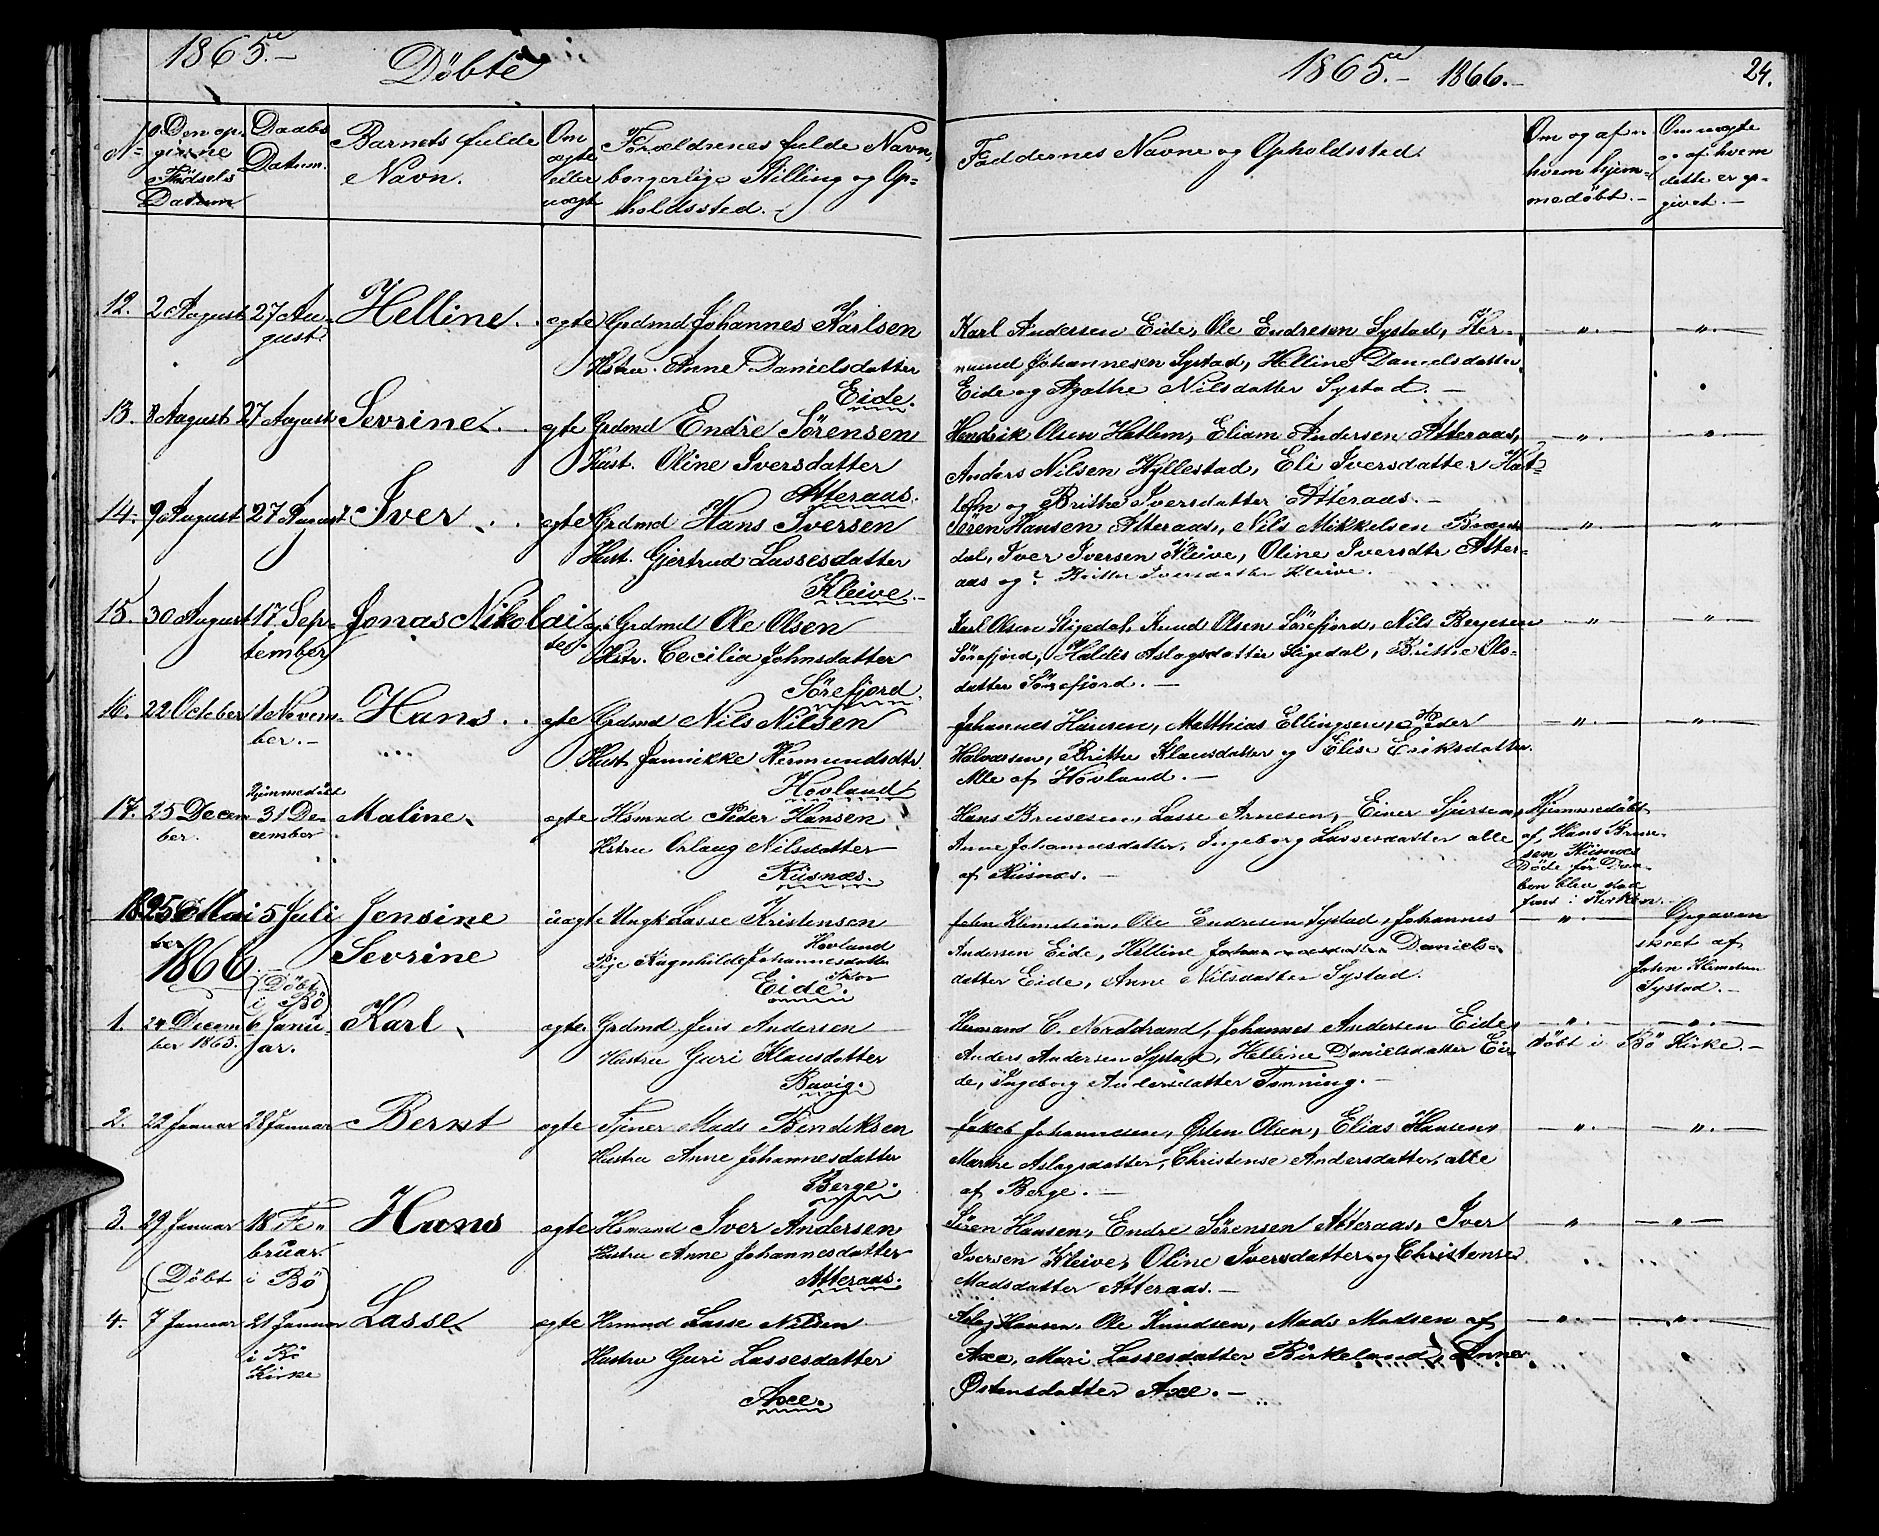 1865.-
Döbte
No. Den opgivne Födsels Datum
Daabs Datum.
Barnets fulde Navn.
Om ægte eller uægte
Forældrenes fulde Navn, borgerlige Stilling og Opholdssted.
12. 2 August 27 August. Helline. ægte Grdmd Johannes Karlsen
Hstru. Anne Danielsdatter
Eide.
13. 8 August 27 August Sevrine. ægte Grdmd Endre Sörensen
Hust. Oline Iversdatter
Atteraas.
14. 9 August 27 August Iver. ægte Grdmd Hans Iversen
Hust. Gjertrud Lassesdatter
Kleive.
15. 30 August 17 September Jonas Nikolai ægte. Grdmd Ole Olsen
Hstr. Cecilia Johnsdatter
Sörefjord.
16. 22 October 1 November.- Hans. ægte Grdmd Nils Nilsen
Hust. Jannikke Nermundsdtr
Hovland
17. 25 December. Hjemmedöbt 31 December Maline. ægte Hsmnd Peder Hansen
Hstru Orlaug Nilsdatter
Riisnæs.
18. 25 Mai 5 Juli Jensine Sevrine uægte Ungk Lasse Kristensen
Hovland
Pige Ragnhilde Johannesdatter
Eide.
1866 (Döbt i Bö)
1. 24 December 1865. 6 Januar. Karl. ægte Grdmd. Jens Andersen
Hustru Guri Klausdatter
Buvig.
2. 22 Januar 28 Januar Bernt ægte Tjener Mads Bendiksen
Hustru Anne Johannesdatter
Berge.
3. 29 Januar 18 Februar. Hans ægte Hsmand Iver Andersen
Hustru Anne Johannesdatter
(Döbt i Bö) Atteraas.
4. 7 Januar 21 Januar i Bö Kirke Lasse ægte Hsmnd Lasse Nilsen
Hustru Guri Lassesdatter
Axe.
1865.- 1866.-
24.
Faddernes Navne og Opholdssted.
Om og af hvem hjemmedöbt.-
Om uægte og af hvem dette er opgivet.-
Karl Andersen Eide, Ole Endresen Systad, Her-
mund Johannesen Systad, Helline Danielsdatter
Eide og Agathe Nilsdatter Systad.-
Hendrik Olsen Hatlem, Eliam Andersen Atteraas,
Anders Nilsen Hyllestad, Eli Iversdatter Hat-
lem og Brithe Iversdatter Atteraas.-
Sören Hansen Atteraas, Nils Mikkelsen
dal, Iver Iversen Kleive, Oline Iversdtr Atter-
aas og Iversdatter Kleive.
Karl Olsen Stigedal, Knud Olsen Sörefjord, Nils
Sörefjord, Aslagsdatter Stigedal, Brithe Ols-
datter Sörefjord.-
Johannes Hansen, Matthias Ellingsen, Peder
Halvorsen, Brithe Klausdatter og Elise Eriksdatter
Alle af Hovland.-
Hans Brusesen, Lasse Arnesen, Einer Sjursen,
Anne Johannesdatter, Ingeborg Lassesdatter alle
af Riisnæs.-
Hjemmedöbt af Hans Brusesen Riisnæs
Döde för Daaben blev stadfæst i Kirken.-
John Klemetsen, Ole Endresen Systad, Johannes
Andersen Eide, Helline Daniels-
datter Eide, Anne Nilsdatter Systad.
Opgaven skeet af John Klemetsen Systad.-
Hermans C. Nordstrand, Johannes Andersen Eide,
Anders Andersen Systad, Helline Danielsdatter Ei-
de, Ingeborg Andersdatter Tønning.-
Döbt i Bö Kirke.-
Jakob Johannesen, Østen Olsen, Elias Hansen,
Marthe Aslagsdatter, Christense Andersdatter, alle
af Berge.-
Sören Hansen, Endre Sörensen Atteraas, Iver
Iversen Kleive, Oline Iversdatter og Christense
Madsdatter Atteraas.-
Aslag Hansen, Ole Knudsen, Mads Madsen af
Axe, Mari Lassesdatter Birkeland, Anne
Østensdatter Axe.-